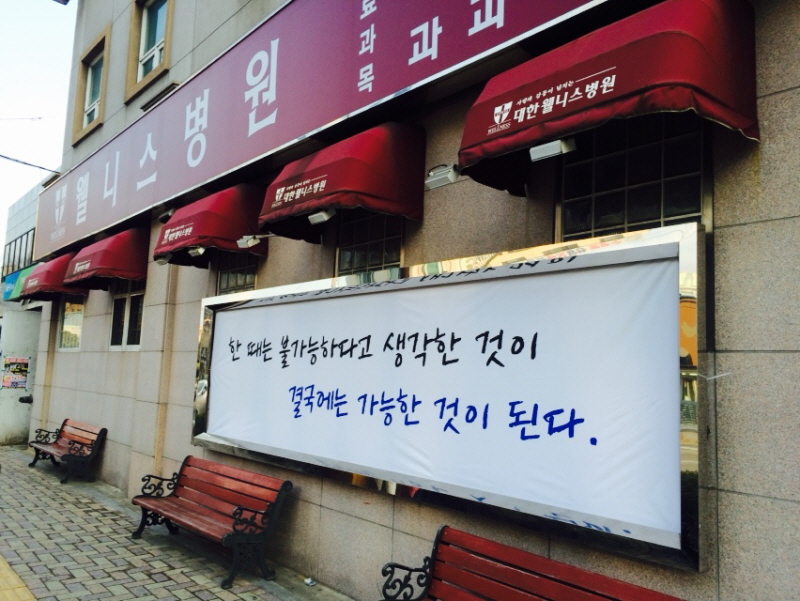 웰니스병원
료과목
과 과
대한웰니스병원
대한웰니스병원
한 때는 불가능하다고 생각한 것이
결국에는 가능한 것이 된다.